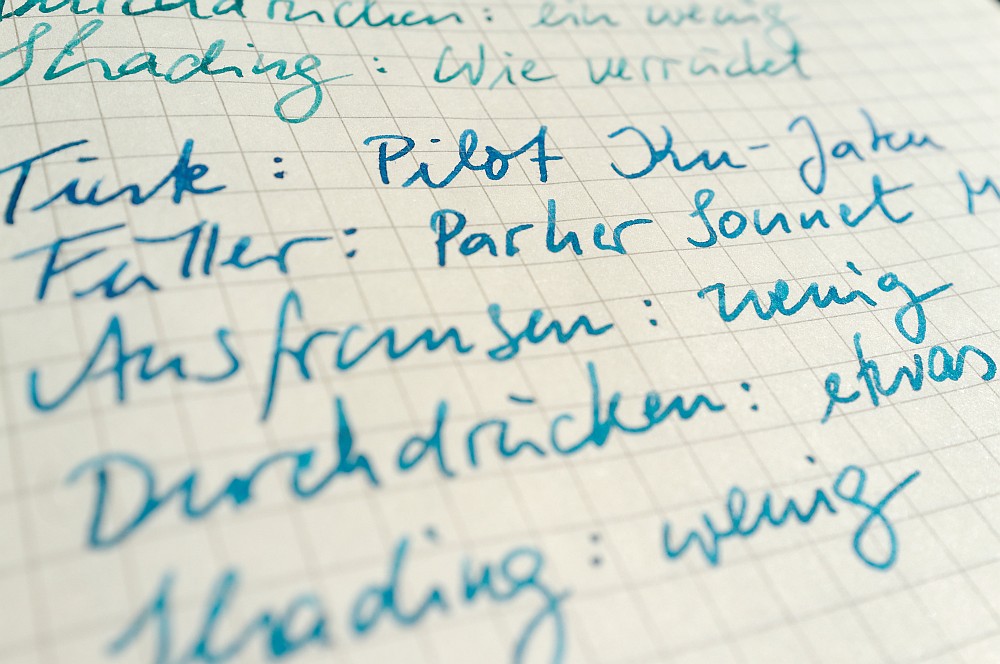 Durchdrücken: ein wenig
Shading: Wie verrückt
Tinte: Pilot Ku-Jaku
Füller: Parker Sonnet M
Ausfransen: wenig
Durchdrücken: etwas
Shading: wenig